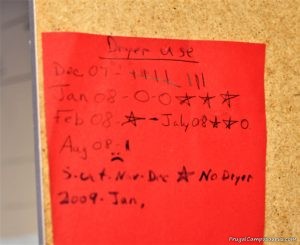 Dryer use
Dec 07 -
Jan 08 - 0 - 0 ☆ ☆ ☆
Feb 08 - ☆ - July 08 ☆ ☆ 0
Aug 08 - 1
Nov - Dec ☆ No Dryer
2009 - Jan,